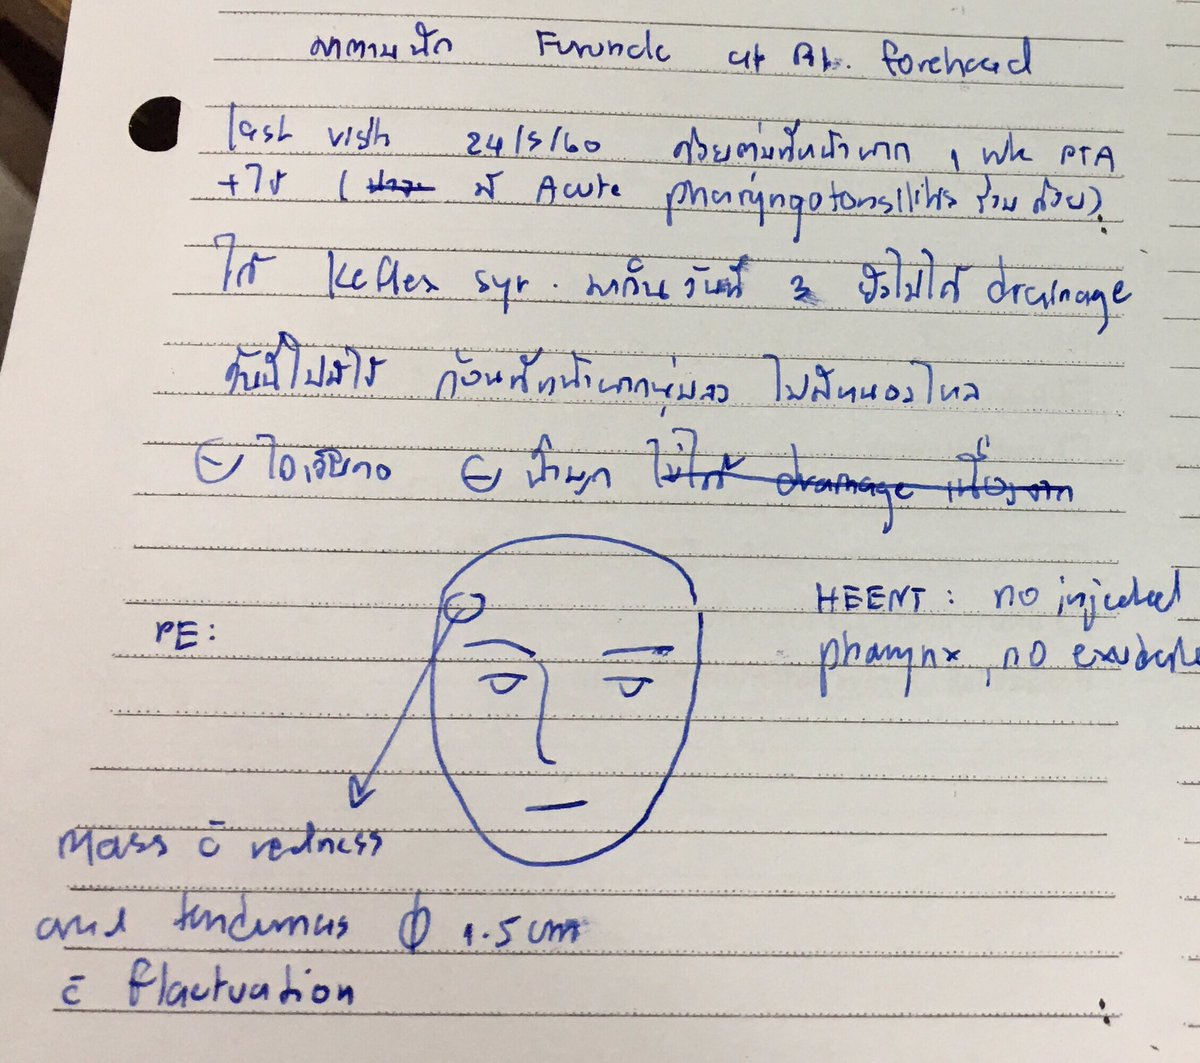 มาตามนัด Furuncle at Rt. forehead
last visit 24/5/60 ด้วยตุ่มที่หน้าผาก, PTA
+ไข้ ( มี Acute pharyngotonsillitis ร่วมด้วย)
ได้ Keflex syr. มากินวันที่ 3 ยังไม่ได้ drainage
วันนี้ไม่มีไข้ ก้อนที่หน้าผากนุ่มลง ไม่มีหนองไหล
⊖ ไอ, เจ็บคอ ⊖ น้ำมูก ไม่ได้ drainage เนื่องจาก
HEENT: no injected
PE:
pharynx, no exudate
Mass c̄ redness
and tenderness ϕ 1.5 cm
c̄ flactuation